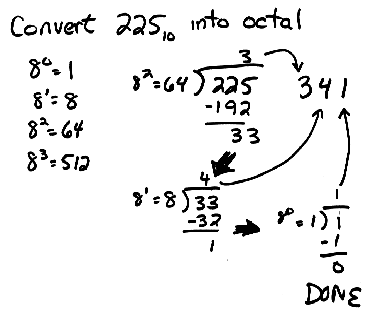 Convert 225₁₀ into octal
8⁰=1
8¹=8
8²=64
8³=512
3
8²=64)225
-192
33
341
4
8¹=8)33
-32
1
1
8⁰=1)1
-1
0
DONE